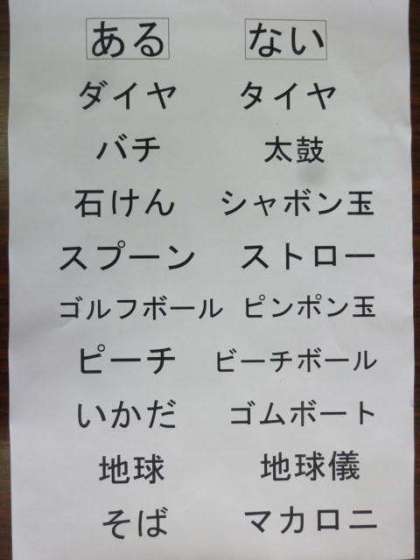 ある ない
ダイヤ タイヤ
バチ 太鼓
石けん シャボン玉
スプーン ストロー
ゴルフボール ピンポン玉
ピーチ ビーチボール
いかだ ゴムボート
地球 地球儀
そば マカロニ